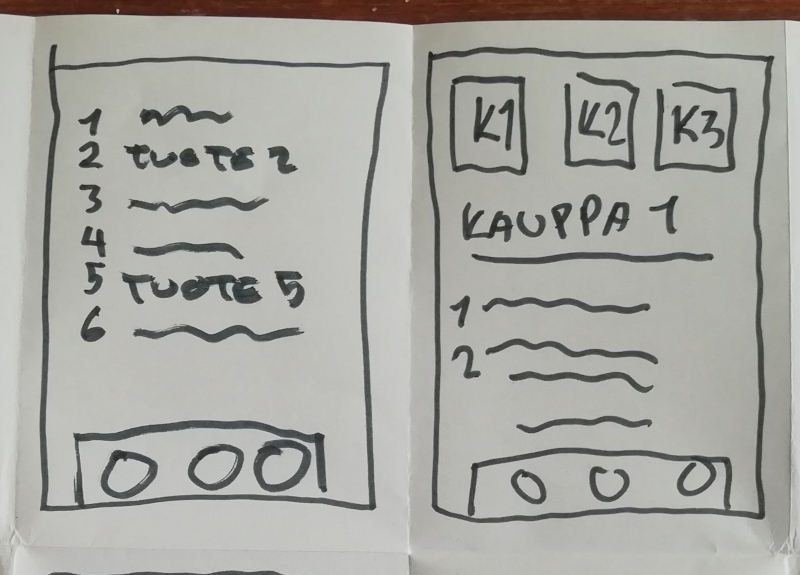 1
2 TUOTE 2
3
4
5 TUOTE 5
6
K1 K2 K3
KAUPPA 1
1
2